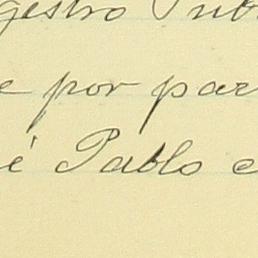 gestro Pub
e por par
é Pablo e